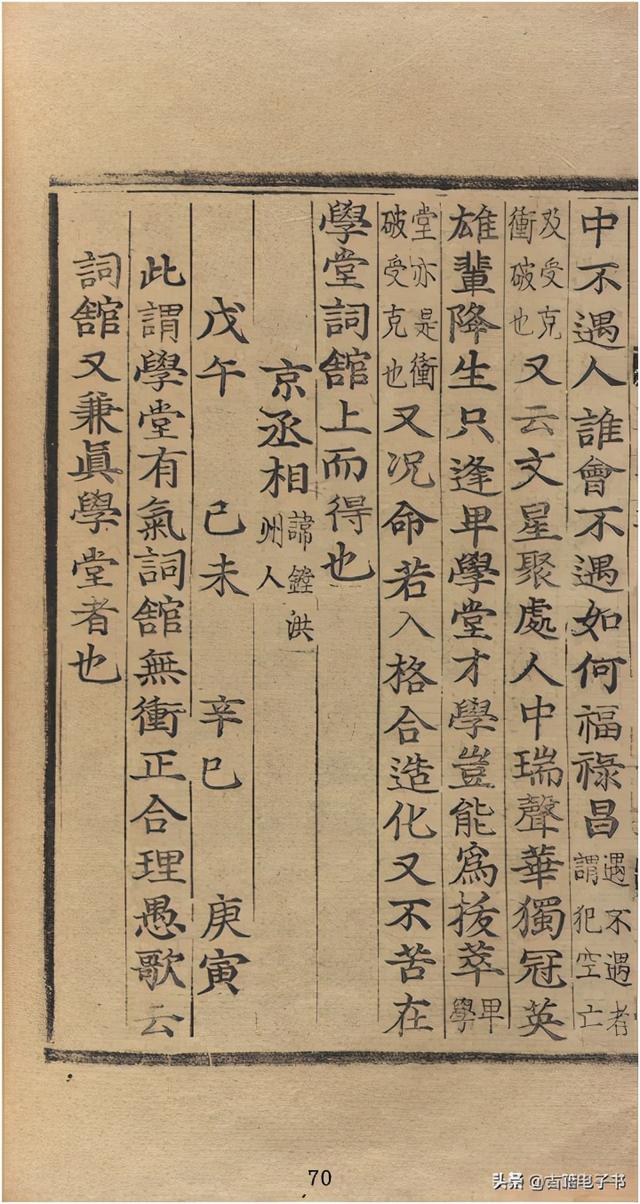 中不遇人誰會不遇如何福祿昌遇不遇者謂犯空亡
及受克衝破也又云文星聚處人中瑞聲華獨冠英
雄輩降生只逢卑學堂才學豈能爲拔萃卑學
堂亦是衝破受克也又况命若入格合造化又不苦在
學堂詞舘上而得也
京丞相諱鏜洪州人
戊午 己未 辛巳 庚寅
此謂學堂有氣詞舘無衝正合理愚歌云
詞舘又兼眞學堂者也
70
头条@古籍电子书